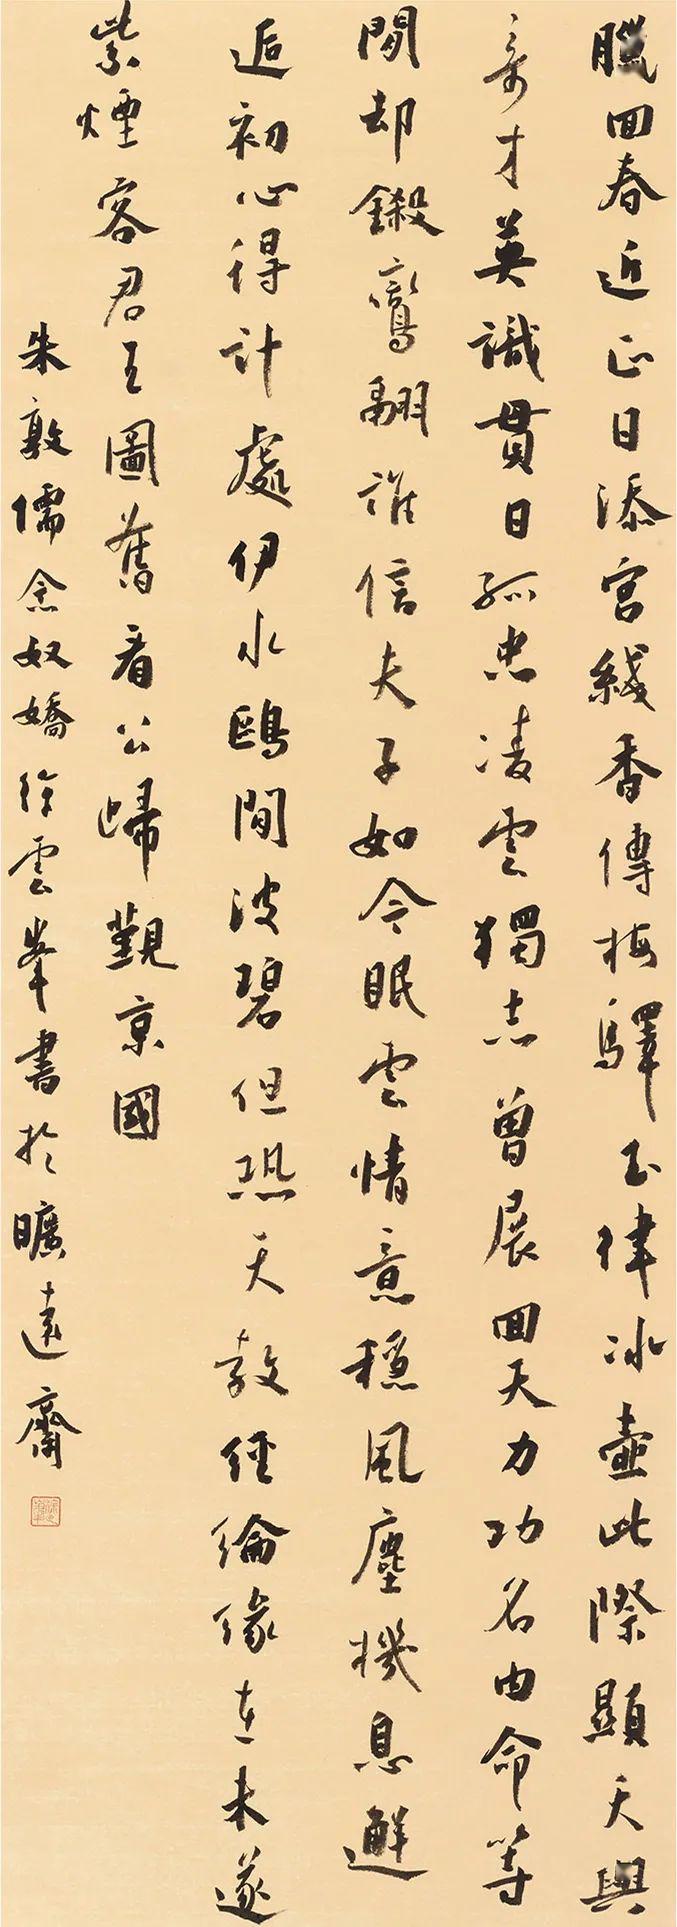 臘回春近正日添宮綫香傳梅驛玉律冰壺此際顯天與
奇才英識貫日孤忠凌雲獨志曾展回天力功名由命等
閑却鎩鸞翮誰信夫子如今眠雲情意穩風塵機息邂
逅初心得計處伊水鷗閒波碧但恐天教經綸緣在未遂
紫煙客君王圖舊看公歸覲京國
朱敦儒念奴嬌徐雲峯書於曠遠齋